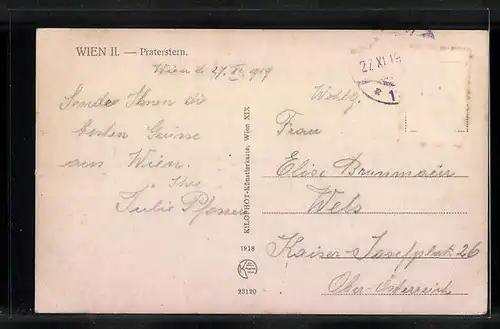 WIEN II. — Praterstern.
Wien d. 27. XI. 1919
27. XI. 19
* 1
Sende Ihnen die
besten Grüsse
aus Wien.
Ihre
Julie
Wohlg.
Frau
Elise Brunmair
Wels
Kaiser-Josefplatz 26
Ober-Österreich
KILOPHOT-Künstlerkarte, Wien XIX
1918
23120